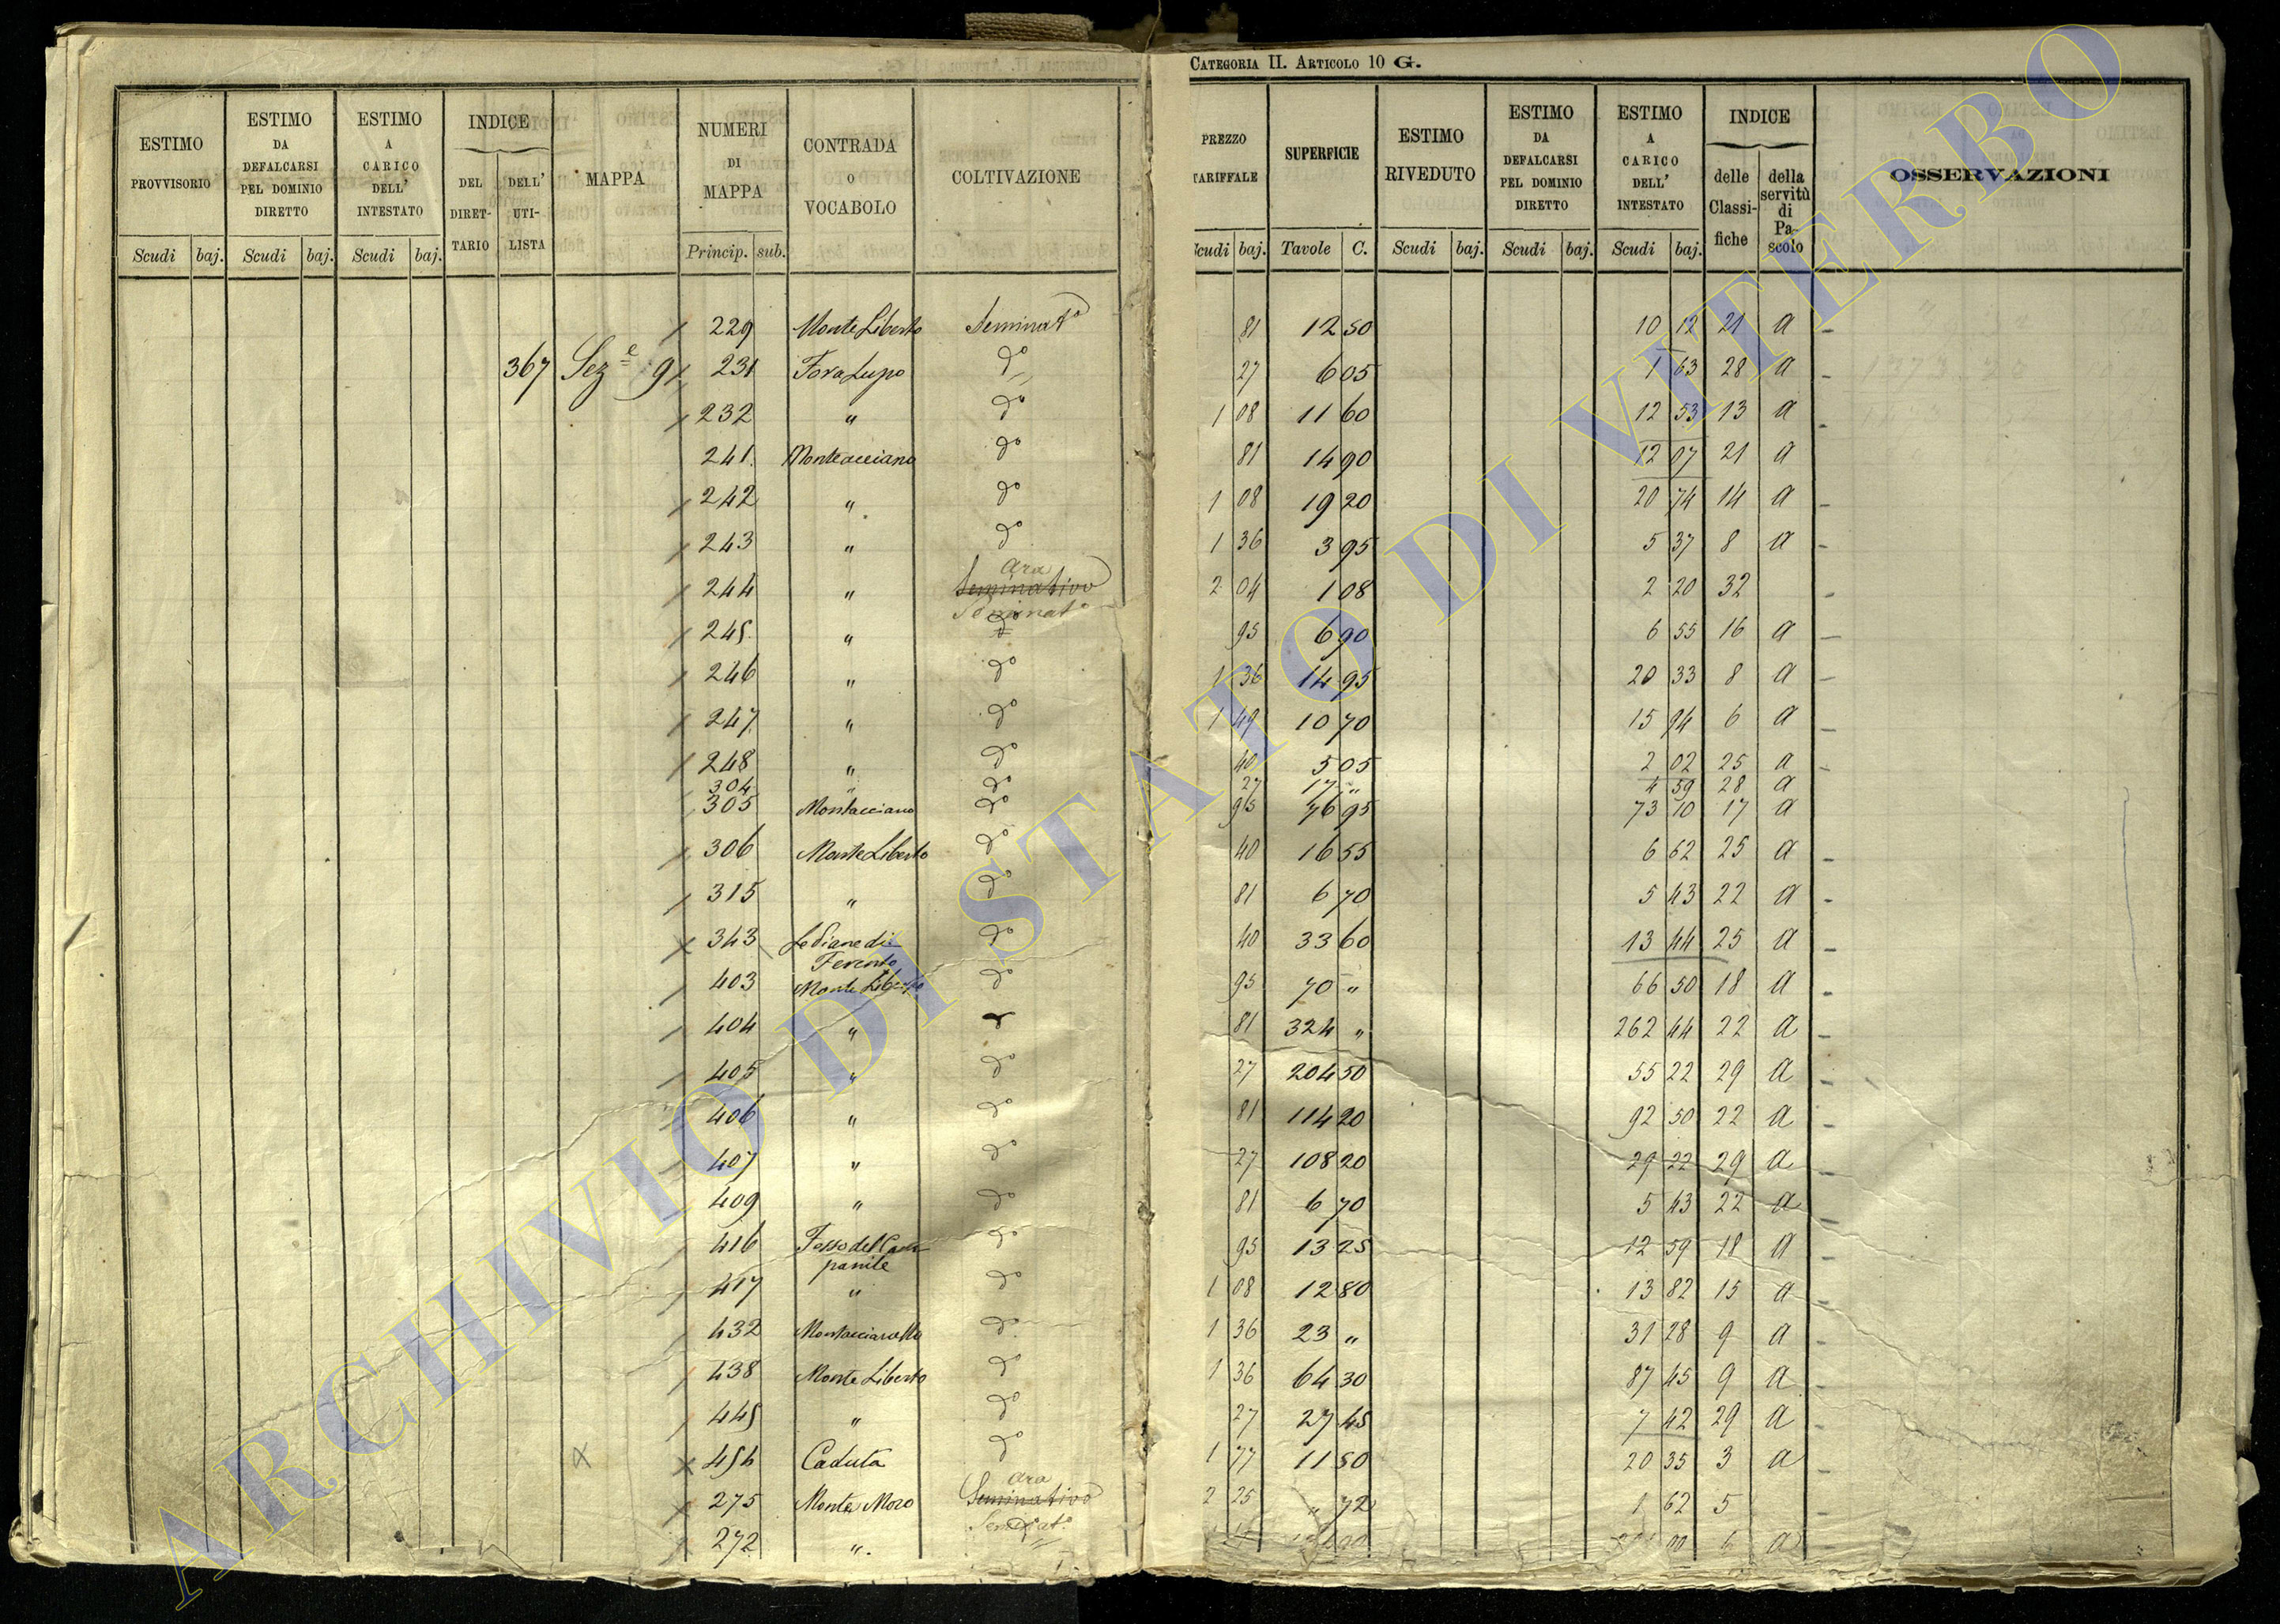 CATEGORIA II. ARTICOLO 10 G.
ESTIMO PROVVISORIO Scudi baj. ESTIMO DA DEFALCARSI PEL DOMINIO DIRETTO Scudi baj. ESTIMO A CARICO DELL' INTESTATO Scudi baj. INDICE DEL DIRET- TARIO DELL' UTI- LISTA MAPPA NUMERI DI MAPPA Princip. sub. CONTRADA O VOCABOLO COLTIVAZIONE PREZZO TARIFFALE Scudi baj. SUPERFICIE Tavole C. ESTIMO RIVEDUTO Scudi baj. ESTIMO DA DEFALCARSI PEL DOMINIO DIRETTO Scudi baj. ESTIMO A CARICO DELL' INTESTATO Scudi baj. INDICE delle Classi- fiche della servitù di Pa- scolo OSSERVAZIONI
229 Monte Liberto Seminat.o 81 12 50 10 12 21 a
367 Sez.e 9 231 Fora Lupo do 27 6 05 1 63 28 a
232 " do 1 08 11 60 12 53 13 a
241. Monteacciano do 81 14 90 12 07 21 a
242 " do 1 08 19 20 20 74 14 a
243 " do 1 36 3 95 5 37 8 a
Ara
244 " Seminativo 2 04 1 08 2 20 32
Seminat.o
245. " do 95 6 90 6 55 16 a
246 " do 1 36 14 95 20 33 8 a
247. " do 1 49 10 70 15 94 6 a
248 " do 40 5 05 2 02 25 a
304 " do 27 17 " 4 59 28 a
305 Montacciano do 95 76 95 73 10 17 a
306 Monte Liberto do 40 16 55 6 62 25 a
315 " do 81 6 70 5 43 22 a
343 Le Piane di do 40 33 60 13 44 25 a
Ferento
403 Monte Liberto do 95 70 " 66 50 18 a
404 " 81 324 " 262 44 22 a
405 " do 27 204 50 55 22 29 a
406 " do 81 114 20 92 50 22 a
407 " do 27 108 20 29 22 29 a
409 " do 81 6 70 5 43 22 a
416 Fosso del Cam do 95 13 25 12 59 18 a
panile
417 " do 1 08 12 80 13 82 15 a
432 Montacciarello do 1 36 23 " 31 28 9 a
438 Monte Liberto do 1 36 64 30 87 45 9 a
445 " do 27 27 45 7 42 29 a
454 Caduta do 1 77 11 50 20 35 3 a
Ara
275 Monte Moro Seminativo 2 25 " 72 1 62 5
Seminat.o
272 ". 6 a
ARCHIVIO DI STATO DI VITERBO